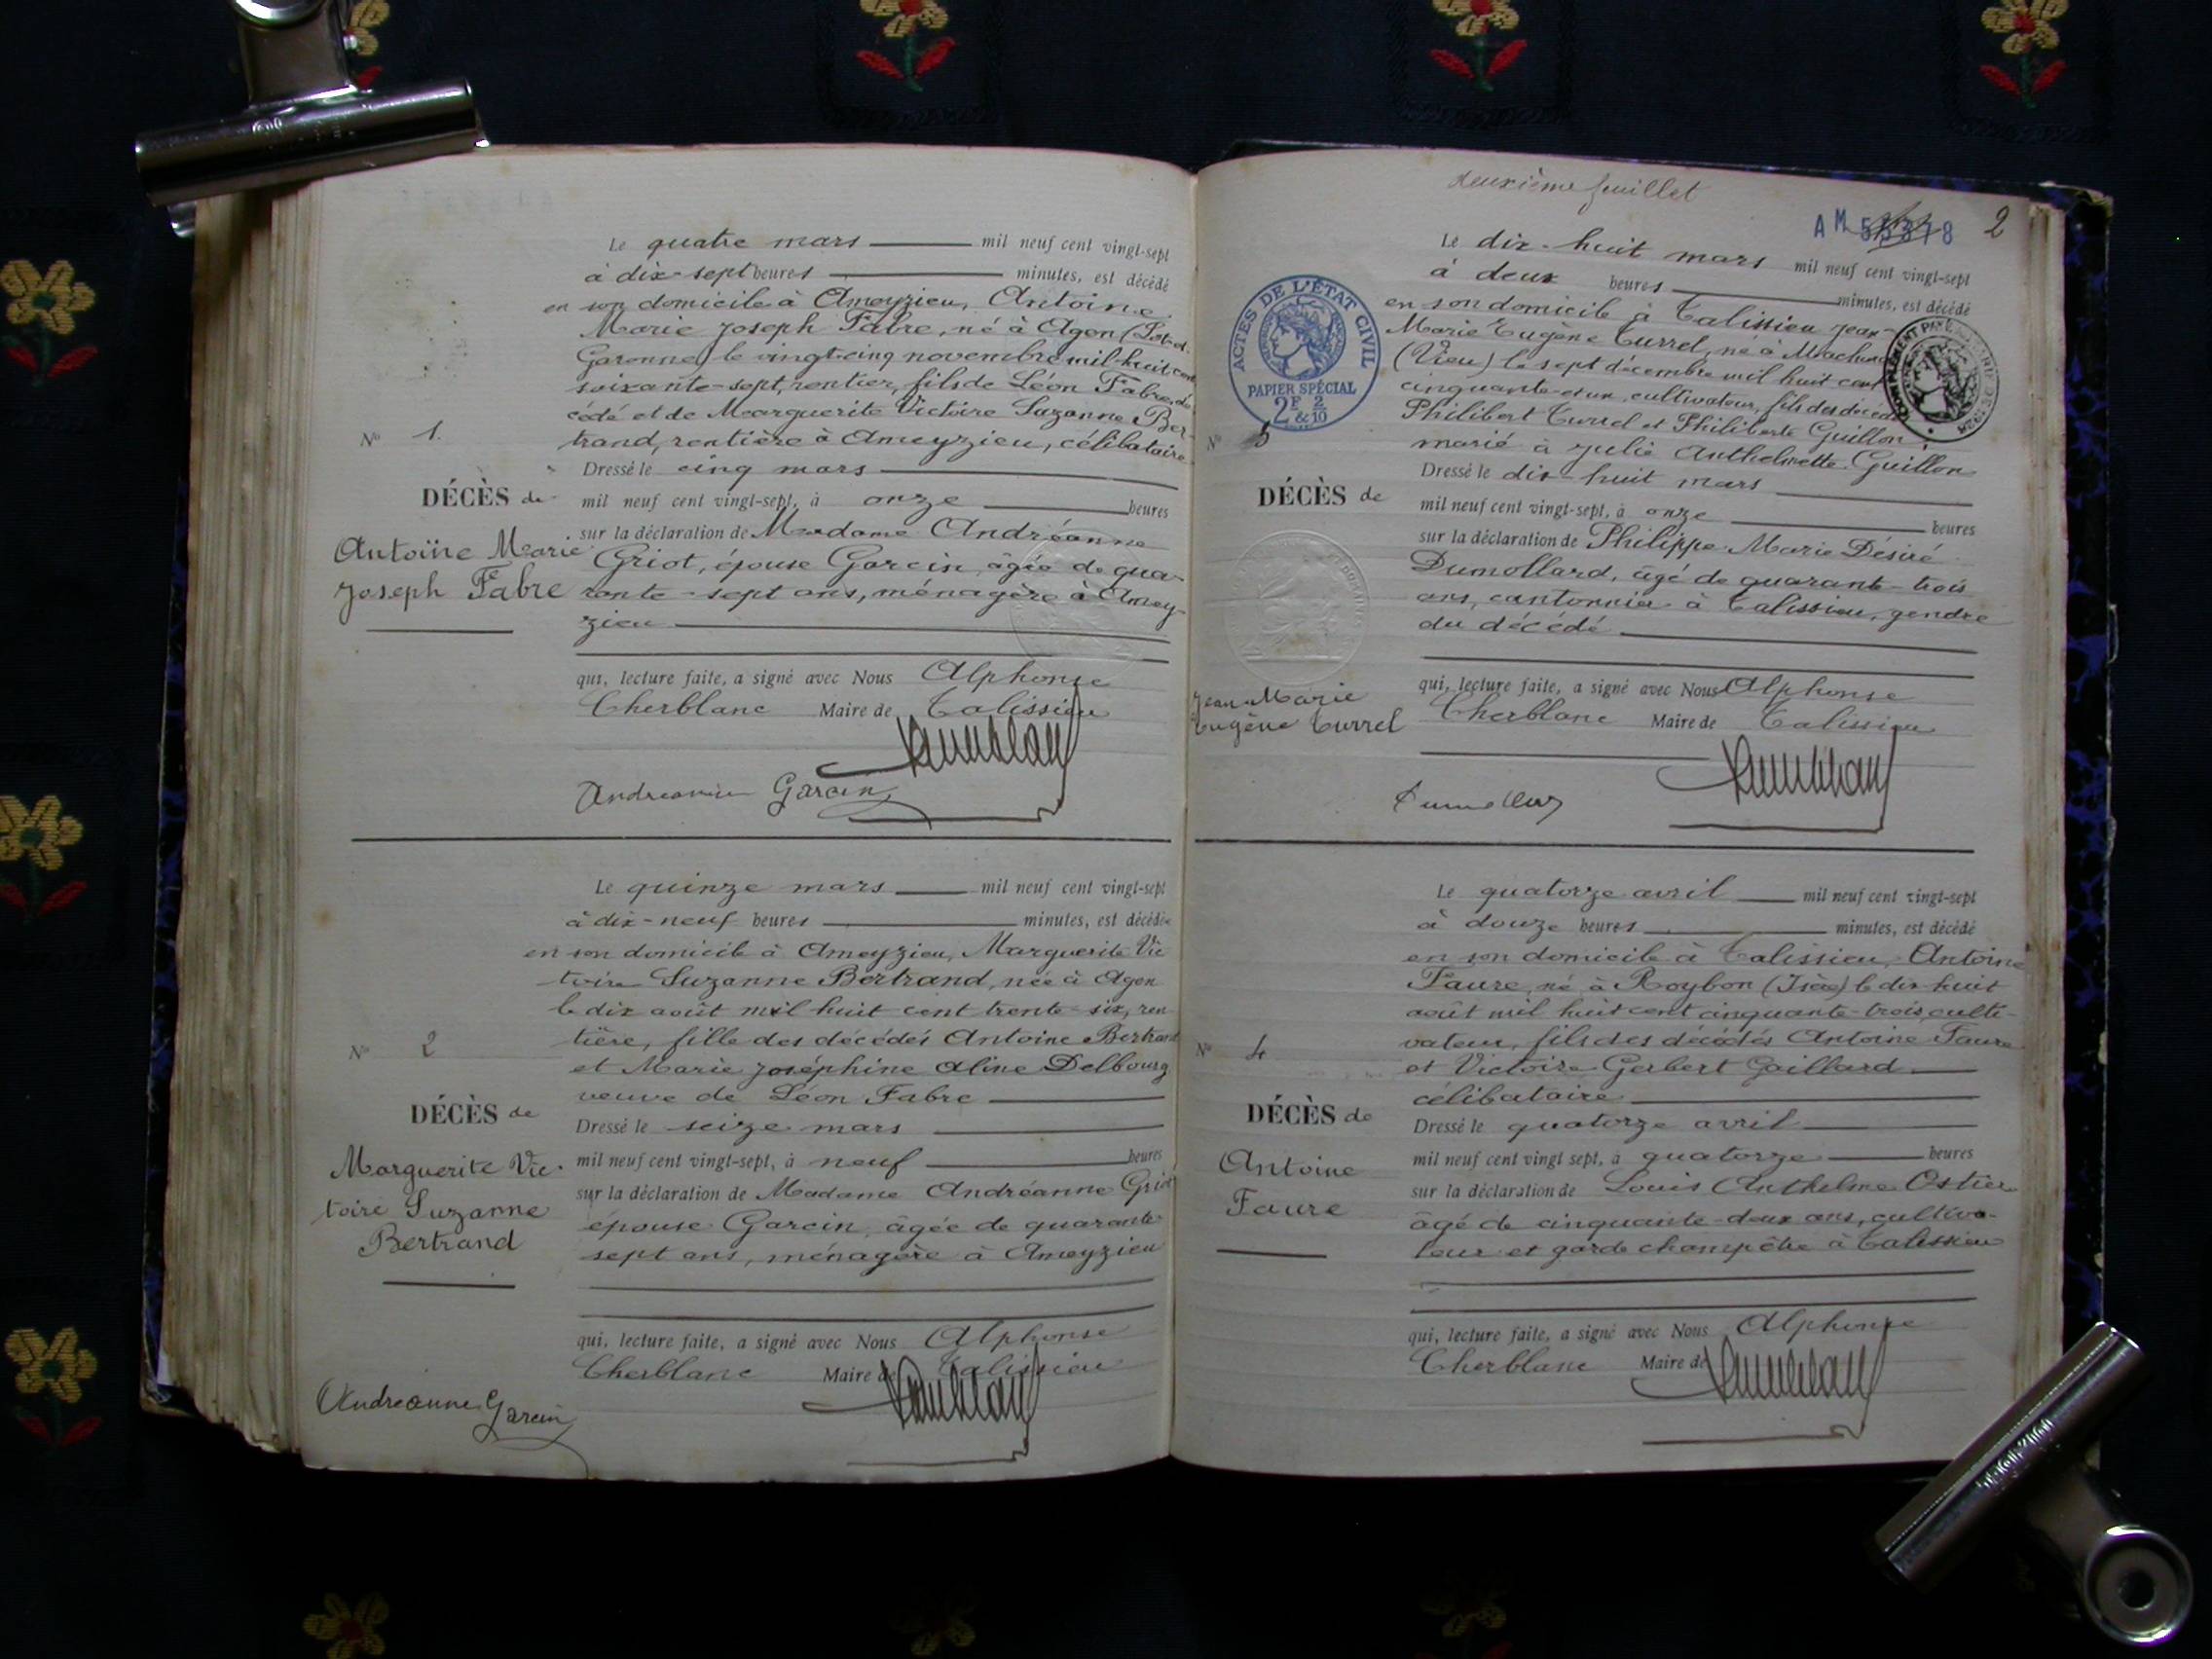 Le quatre mars mil neuf cent vingt-sept
à dix-sept heures minutes, est décédé
en son domicile à Ameyzieu, Antoine
Marie Joseph Fabre, né à Agen (Lot-et-
Garonne) le vingt-cinq novembre mil huit cent
soixante-sept, rentier, fils de Léon Fabre, dé
cédé et de Marguerite Victoire Suzanne Ber-
trand, rentière à Ameyzieu, célibataire
Dressé le cinq mars
mil neuf cent vingt-sept, à onze heures
sur la déclaration de Madame Andréanne
Griot, épouse Garcin, âgée de qua-
rante-sept ans, ménagère à Amey-
zieu
qui, lecture faite, a signé avec Nous Alphonse
Cherblanc Maire de Talissieu
N° 1.
DÉCÈS de
Antoine Marie
Joseph Fabre
Garcin
Le quinze mars mil neuf cent vingt-sept
à dix-neuf heures minutes, est décédé
en son domicile à Ameyzieu, Marguerite Vic
toire Suzanne Bertrand, née à Agen
le dix août mil huit cent trente-six, ren
tière, fille des décédés Antoine Bertrand
et Marie Joséphine Aline Delbourg
veuve de Léon Fabre
Dressé le seize mars
mil neuf cent vingt-sept, à neuf heures
sur la déclaration de Madame Andréanne Griot
épouse Garcin, âgée de quarante
sept ans, ménagère à Ameyzieu
qui, lecture faite, a signé avec Nous Alphonse
Cherblanc Maire de Talissieu
N° 2
DÉCÈS de
Marguerite Vic-
toire Suzanne
Bertrand
Andreanne Garcin
deuxième feuillet
AM 55378 2
Le dix-huit mars mil neuf cent vingt-sept
à deux heures minutes, est décédé
en son domicile à Talissieu Jean-
Marie Eugène Turrel, né à
(Vieu) le sept décembre mil huit cent
cinquante-et-un, cultivateur, fils des
Philibert Turrel et Philiberte Guillon
marié à Julie Anthelmette Guillon
Dressé le dix-huit mars
mil neuf cent vingt-sept, à onze heures
sur la déclaration de Philippe Marie Désiré
Dumollard, âgé de quarante-trois
ans, cantonnier à Talissieu, gendre
du décédé
qui, lecture faite, a signé avec Nous Alphonse
Cherblanc Maire de Talissieu
ACTES DE L'ÉTAT CIVIL
PAPIER SPÉCIAL
2F & 2/10
N°
DÉCÈS de
Jean Marie
Eugène Turrel
Le quatorze avril mil neuf cent vingt-sept
à douze heures minutes, est décédé
en son domicile à Talissieu, Antoine
Faure, né à Roybon (Isère) le dix-huit
août mil huit cent cinquante-trois, culti-
vateur, fils des décédés Antoine Faure
et Victoire Gerbert Gaillard
célibataire
Dressé le quatorze avril
mil neuf cent vingt sept, à quatorze heures
sur la déclaration de Louis Anthelme Ostier
âgé de cinquante-deux ans, cultiva-
teur et garde champêtre à Talissieu
qui, lecture faite, a signé avec Nous Alphonse
Cherblanc Maire de
N° 4
DÉCÈS de
Antoine
Faure